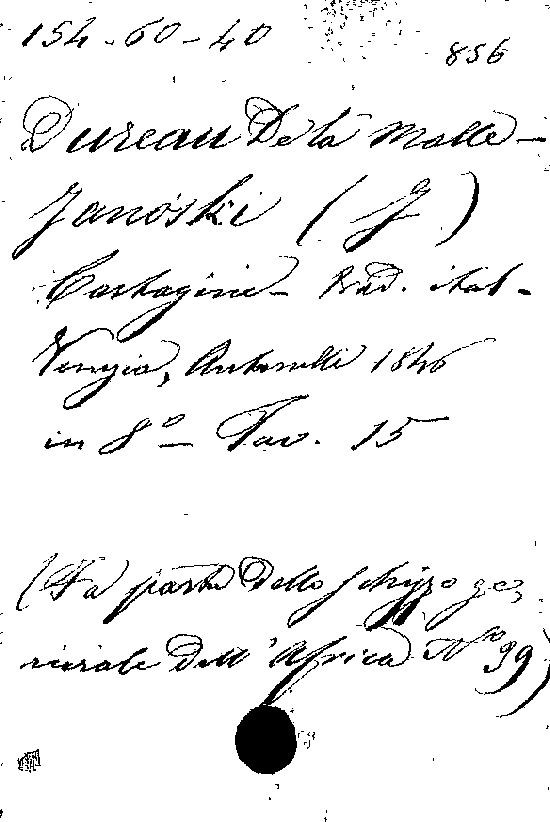 154-60-40
856
Dureau De la Malle -
Janoski (J)
Cartagine - Trad. ital -
Venezia, Antonelli 1846
in 8° - Tav. 15
(Fa parte dello schizzo ge=
nerale dell'Africa N° 99)